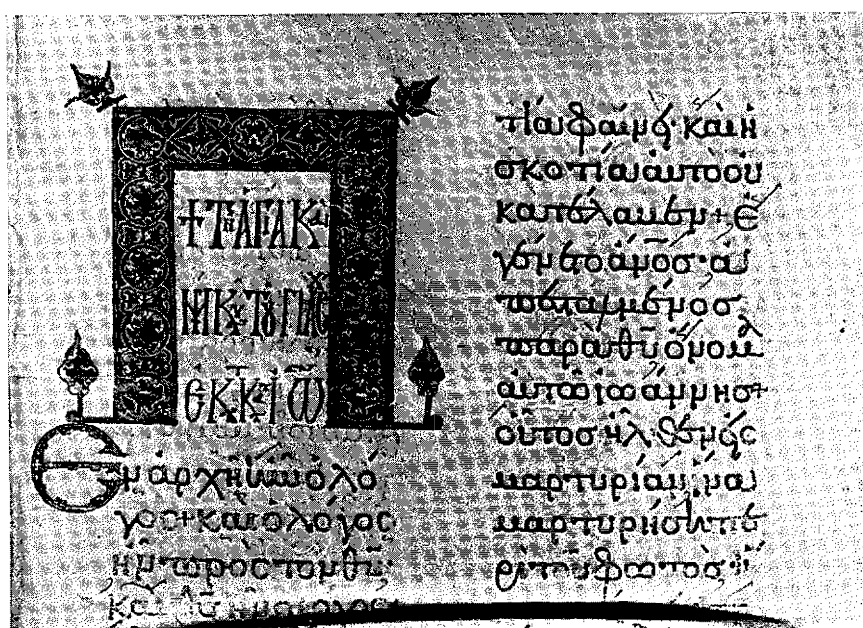 + ΤΗ ΑΓΙΑ Κ
ἐν ἀρχῆ ἦν ὁ λό
γος + καὶ ὁ λόγος
ἦν πρὸς τὸν θν̅·
καὶ θς̅ ἦν ὁ λόγος
τία φαίνει· καὶ ἡ
σκοτία αὐτὸ οὐ
κατέλαβεν + Ἐ
γένετο ἄνο̅ς· ἀ
πεσταλμένος
παρὰ θυ̅ ὄνομα
αὐτῶ ἰωάννης +
οὗτος ἦλθεν εἰς
μαρτυρίαν, ἵνα
μαρτυρήση πε
ρὶ τοῦ φωτὸς· ἵ